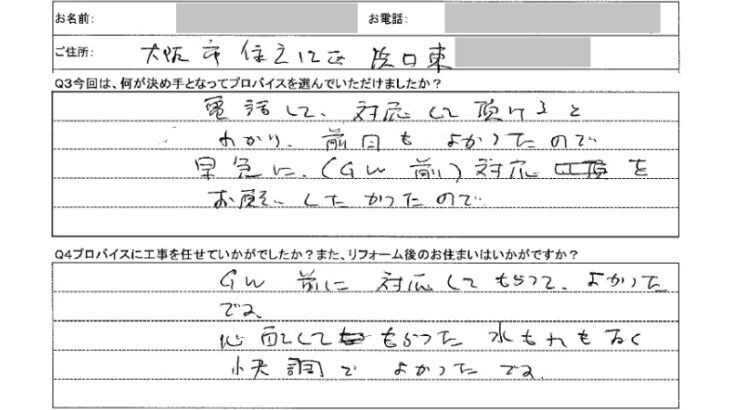 お名前: お電話:
ご住所: 大阪市住之江区浜口東
Q3今回は、何が決め手となってプロバイスを選んでいただけましたか?
電話して、対応して頂けると
わかり、前回もよかったので
早急に、(GW前)対応を
お願いしたかったので
Q4プロバイスに工事を任せていかがでしたか?また、リフォーム後のお住まいはいかがですか?
GW前に対応してもらって、よかった
です。
心配してもらった水もれもなく
快調でよかったです。